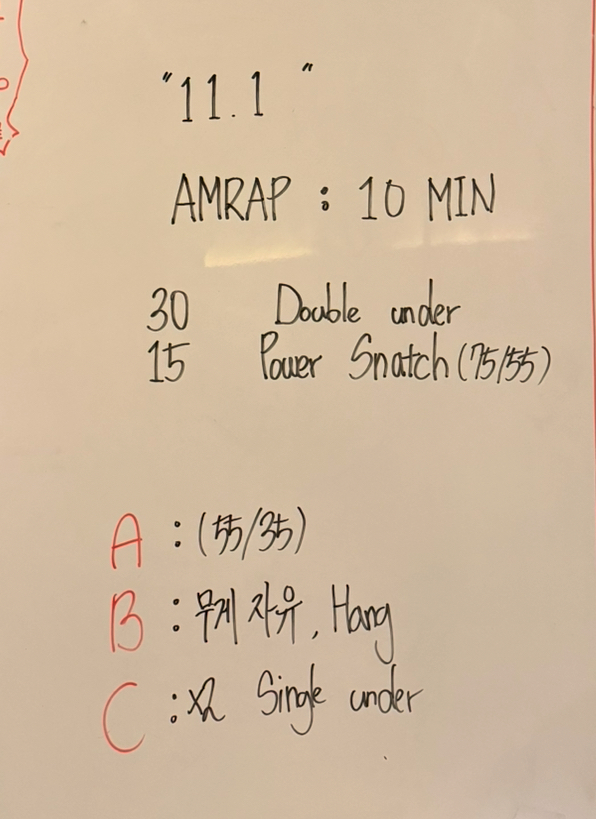 "11.1"
AMRAP : 10 MIN
30 Double under
15 Power Snatch (75/55)
A : (55/35)
B : 무게 자유, Hang
C : x2 Single under